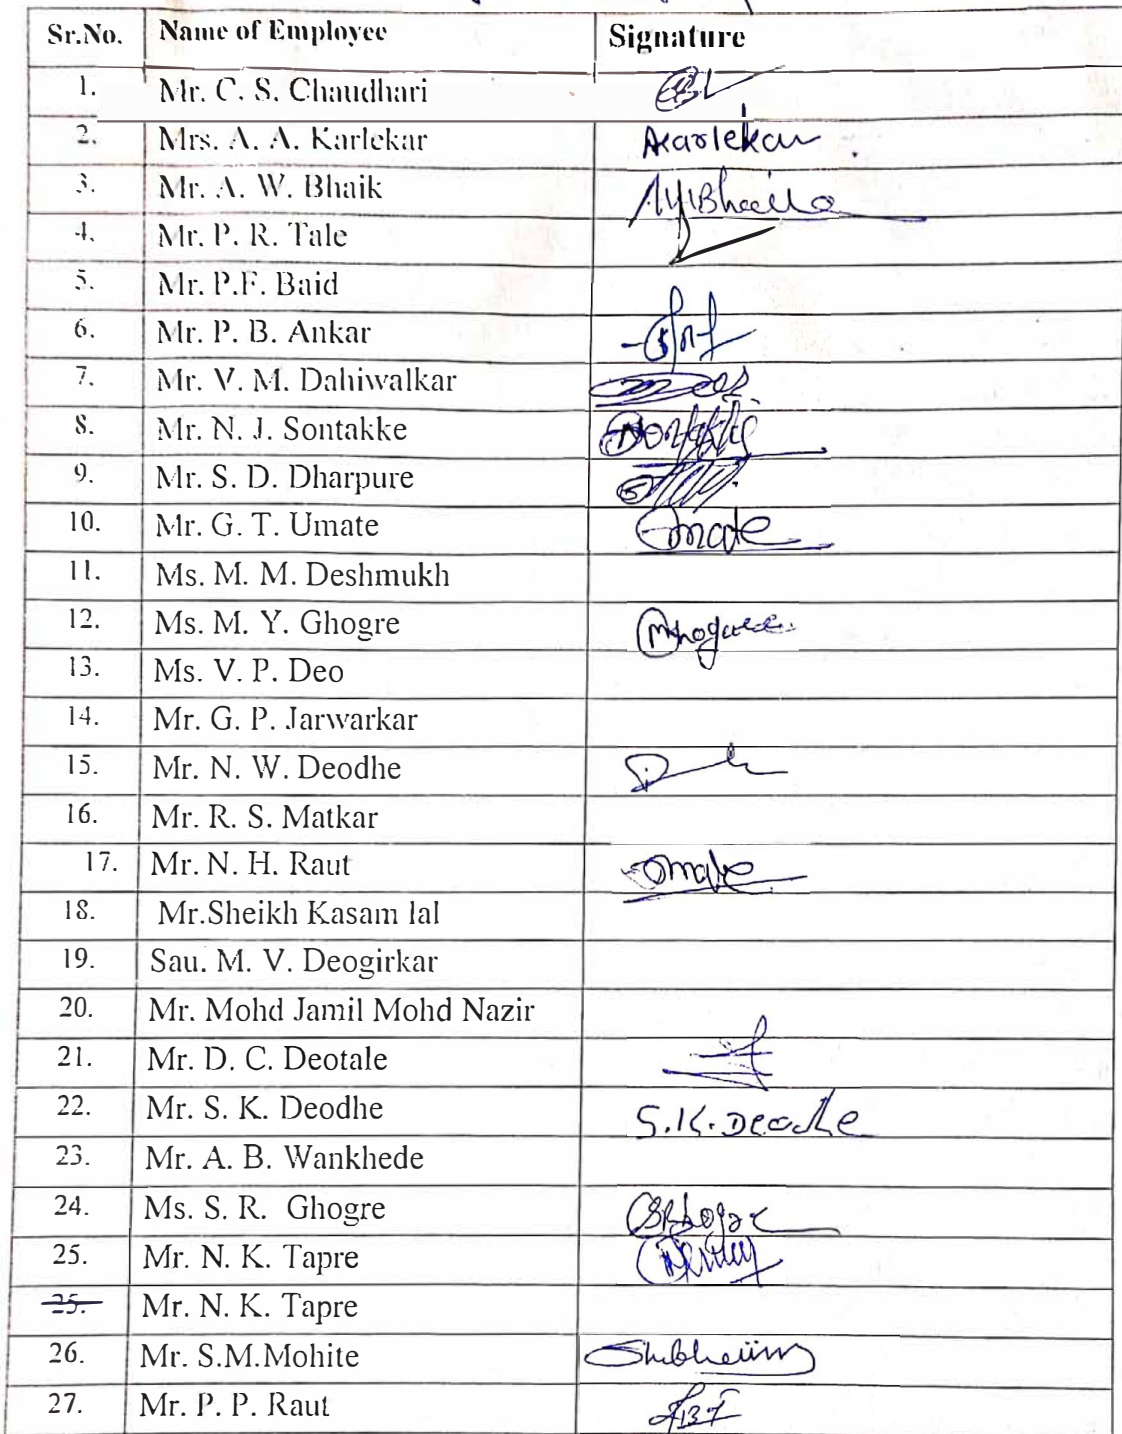 Sr.No. Name of Employee Signature
1. Mr. C. S. Chaudhari
2. Mrs. A. A. Karlekar AKarlekar
3. Mr. A. W. Bhaik
4. Mr. P. R. Tale
5. Mr. P.F. Baid
6. Mr. P. B. Ankar
7. Mr. V. M. Dahiwalkar
8. Mr. N. J. Sontakke
9. Mr. S. D. Dharpure
10. Mr. G. T. Umate
11. Ms. M. M. Deshmukh
12. Ms. M. Y. Ghogre
13. Ms. V. P. Deo
14. Mr. G. P. Jarwarkar
15. Mr. N. W. Deodhe
16. Mr. R. S. Matkar
17. Mr. N. H. Raut
18. Mr.Sheikh Kasam lal
19. Sau. M. V. Deogirkar
20. Mr. Mohd Jamil Mohd Nazir
21. Mr. D. C. Deotale
22. Mr. S. K. Deodhe S.K. Deodhe
23. Mr. A. B. Wankhede
24. Ms. S. R. Ghogre
25. Mr. N. K. Tapre
25. Mr. N. K. Tapre
26. Mr. S.M.Mohite
27. Mr. P. P. Raut